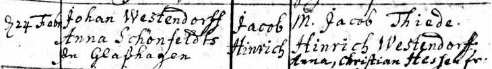 24 Feb Johan Westendorff Jacob M. Jacob Thiede.
Anna Schönfeldts Hinrich Hinrich Westendorff
In Glaßhagen Anna, Christian Hessen fr.